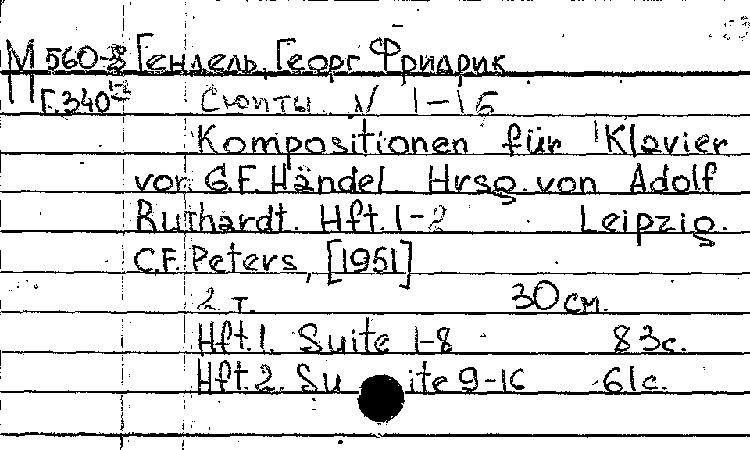 М 560-8 Гендель, Георг Фридрик
Г.340 Сюиты N 1-16
Kompositionen für Klavier
von G.F. Händel. Hrsg. von Adolf
Ruthardt. Hft. 1-2 Leipzig.
C.F. Peters, [1951]
2 т. 30 см.
Hft. 1. Suite 1-8 83 с.
Hft. 2. Suite 9-16 61 с.